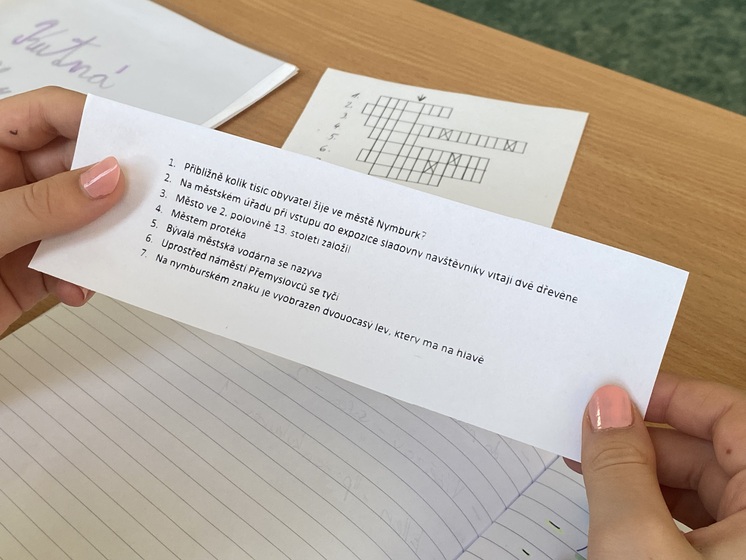 Kutná
1.
2.
3.
4.
5.
6.
1. Přibližně kolik tisíc obyvatel žije ve městě Nymburk?
2. Na městském úřadu při vstupu do expozice sladovny návštěvníky vítají dvě dřevěné
3. Město ve 2. polovině 13. století založil
4. Městem protéká
5. Bývalá městská vodárna se nazývá
6. Uprostřed náměstí Přemyslovců se tyčí
7. Na nymburském znaku je vyobrazen dvouocasý lev, který má na hlavě